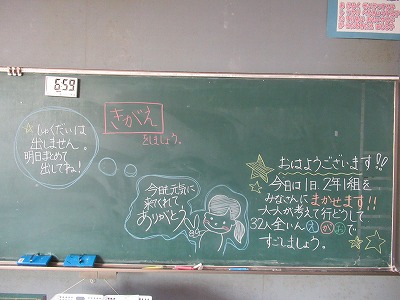 6:59
きがえ
をしましょう。
☆しゅくだいは
出しません。
明日まとめて
出してね!
今日も元気に
来てくれて
ありがとう
おはようございます!!
今日は1日、2年1組を
みなさんに まかせます!!
大人が考えて行どうして
32人全いん えがおで
すごしましょう。